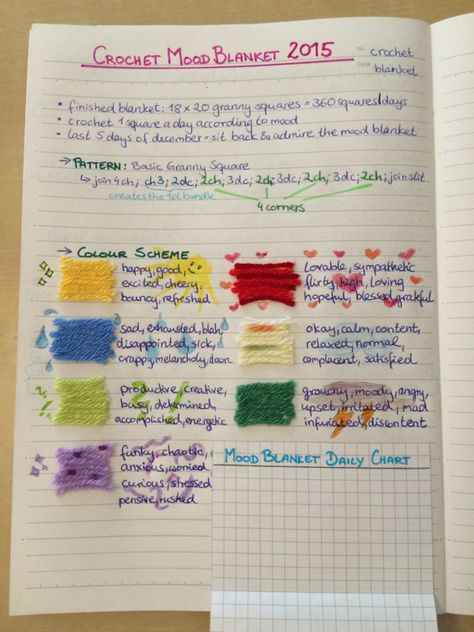 CROCHET MOOD BLANKET 2015
No. crochet
Date blanket
• finished blanket: 18 x 20 granny squares = 360 squares/days
• crochet 1 square a day according to mood
• last 5 days of december = sit back & admire the mood blanket
→ PATTERN: Basic Granny Square
↳ join 4ch; ch3; 2dc; 2ch; 3dc; 2ch; 3dc; 2ch; 3dc; 2ch; join slst
creates the 1st bundle
4 corners
→ COLOUR SCHEME
happy, good,
excited, cheery,
bouncy, refreshed
Lovable, sympathetic
flirty, high, loving
hopeful, blessed, grateful
sad, exhausted, blah,
disappointed, sick,
crappy, melancholy, down
okay, calm, content,
relaxed, normal,
complacent, satisfied
productive, creative,
busy, determined,
accomplished, energetic
grouchy, moody, angry,
upset, irritated, mad
infuriated, discontent
funky, chaotic,
anxious, worried
curious, stressed
pensive, rushed
MOOD BLANKET DAILY CHART